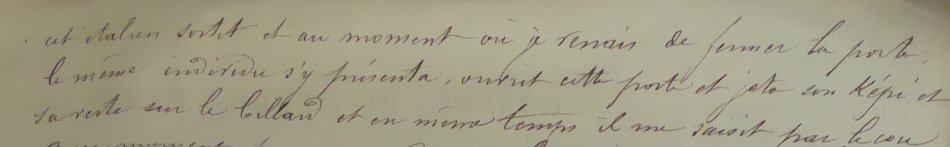 cet italien sortit et au moment où je venais de fermer la porte,
le même individu s'y présenta, ouvrit cette porte et jeta son Képi et
sa veste sur le billard et en même temps il me saisit par le cou